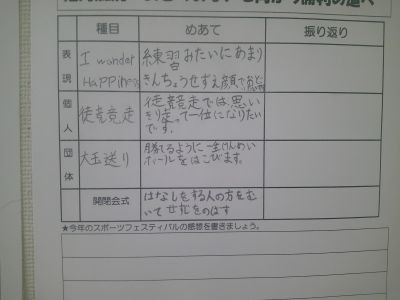 種目 めあて 振り返り
表現
I wonder
HaPPiness
練習みたいにあまり
きんちょうせずえ顔で
個人
徒競走
徒競走では、思い
きり走って一位になりたい
です。
団体
大玉送り
勝てるように一生けんめい
ボールをはこびます。
開閉会式
はなしをする人の方をむ
いてせすじをのばす
★今年のスポーツフェスティバルの感想を書きましょう。